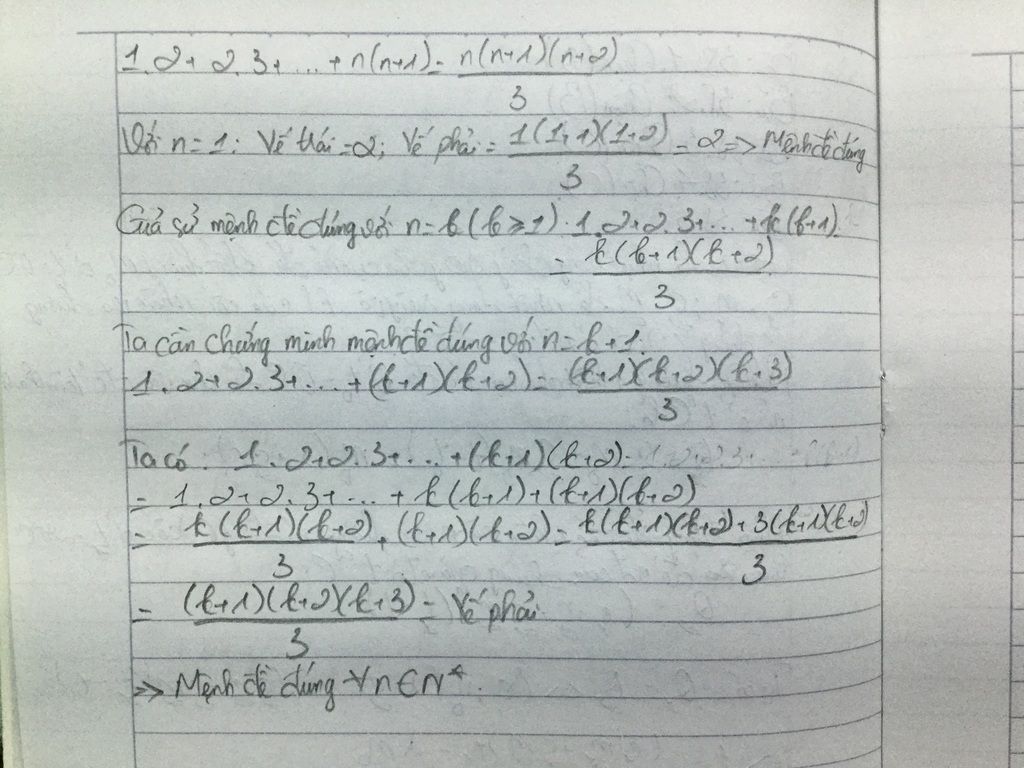 1.2+2.3+...+n(n+1)= n(n+1)(n+2)/3
Với n=1: Vế trái =2; Vế phải = 1(1+1)(1+2)/3 =2=> Mệnh đề đúng
Giả sử mệnh đề đúng với n=k(k≥1). 1.2+2.3+...+k(k+1).
= k(k+1)(k+2)/3
Ta cần chứng minh mệnh đề đúng với n=k+1.
1.2+2.3+...+(k+1)(k+2)= (k+1)(k+2)(k+3)/3
Ta có. 1.2+2.3+...+(k+1)(k+2)
= 1.2+2.3+...+k(k+1)+(k+1)(k+2)
= k(k+1)(k+2)/3 +(k+1)(k+2)= k(k+1)(k+2)+3(k+1)(k+2)/3
= (k+1)(k+2)(k+3)/3 = Vế phải.
=> Mệnh đề đúng ∀n∈N*.